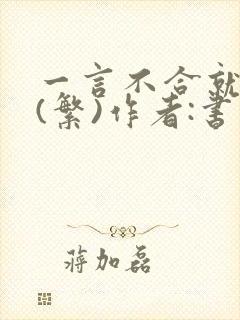 一言不合就
(繁)作者:書
蔣加磊